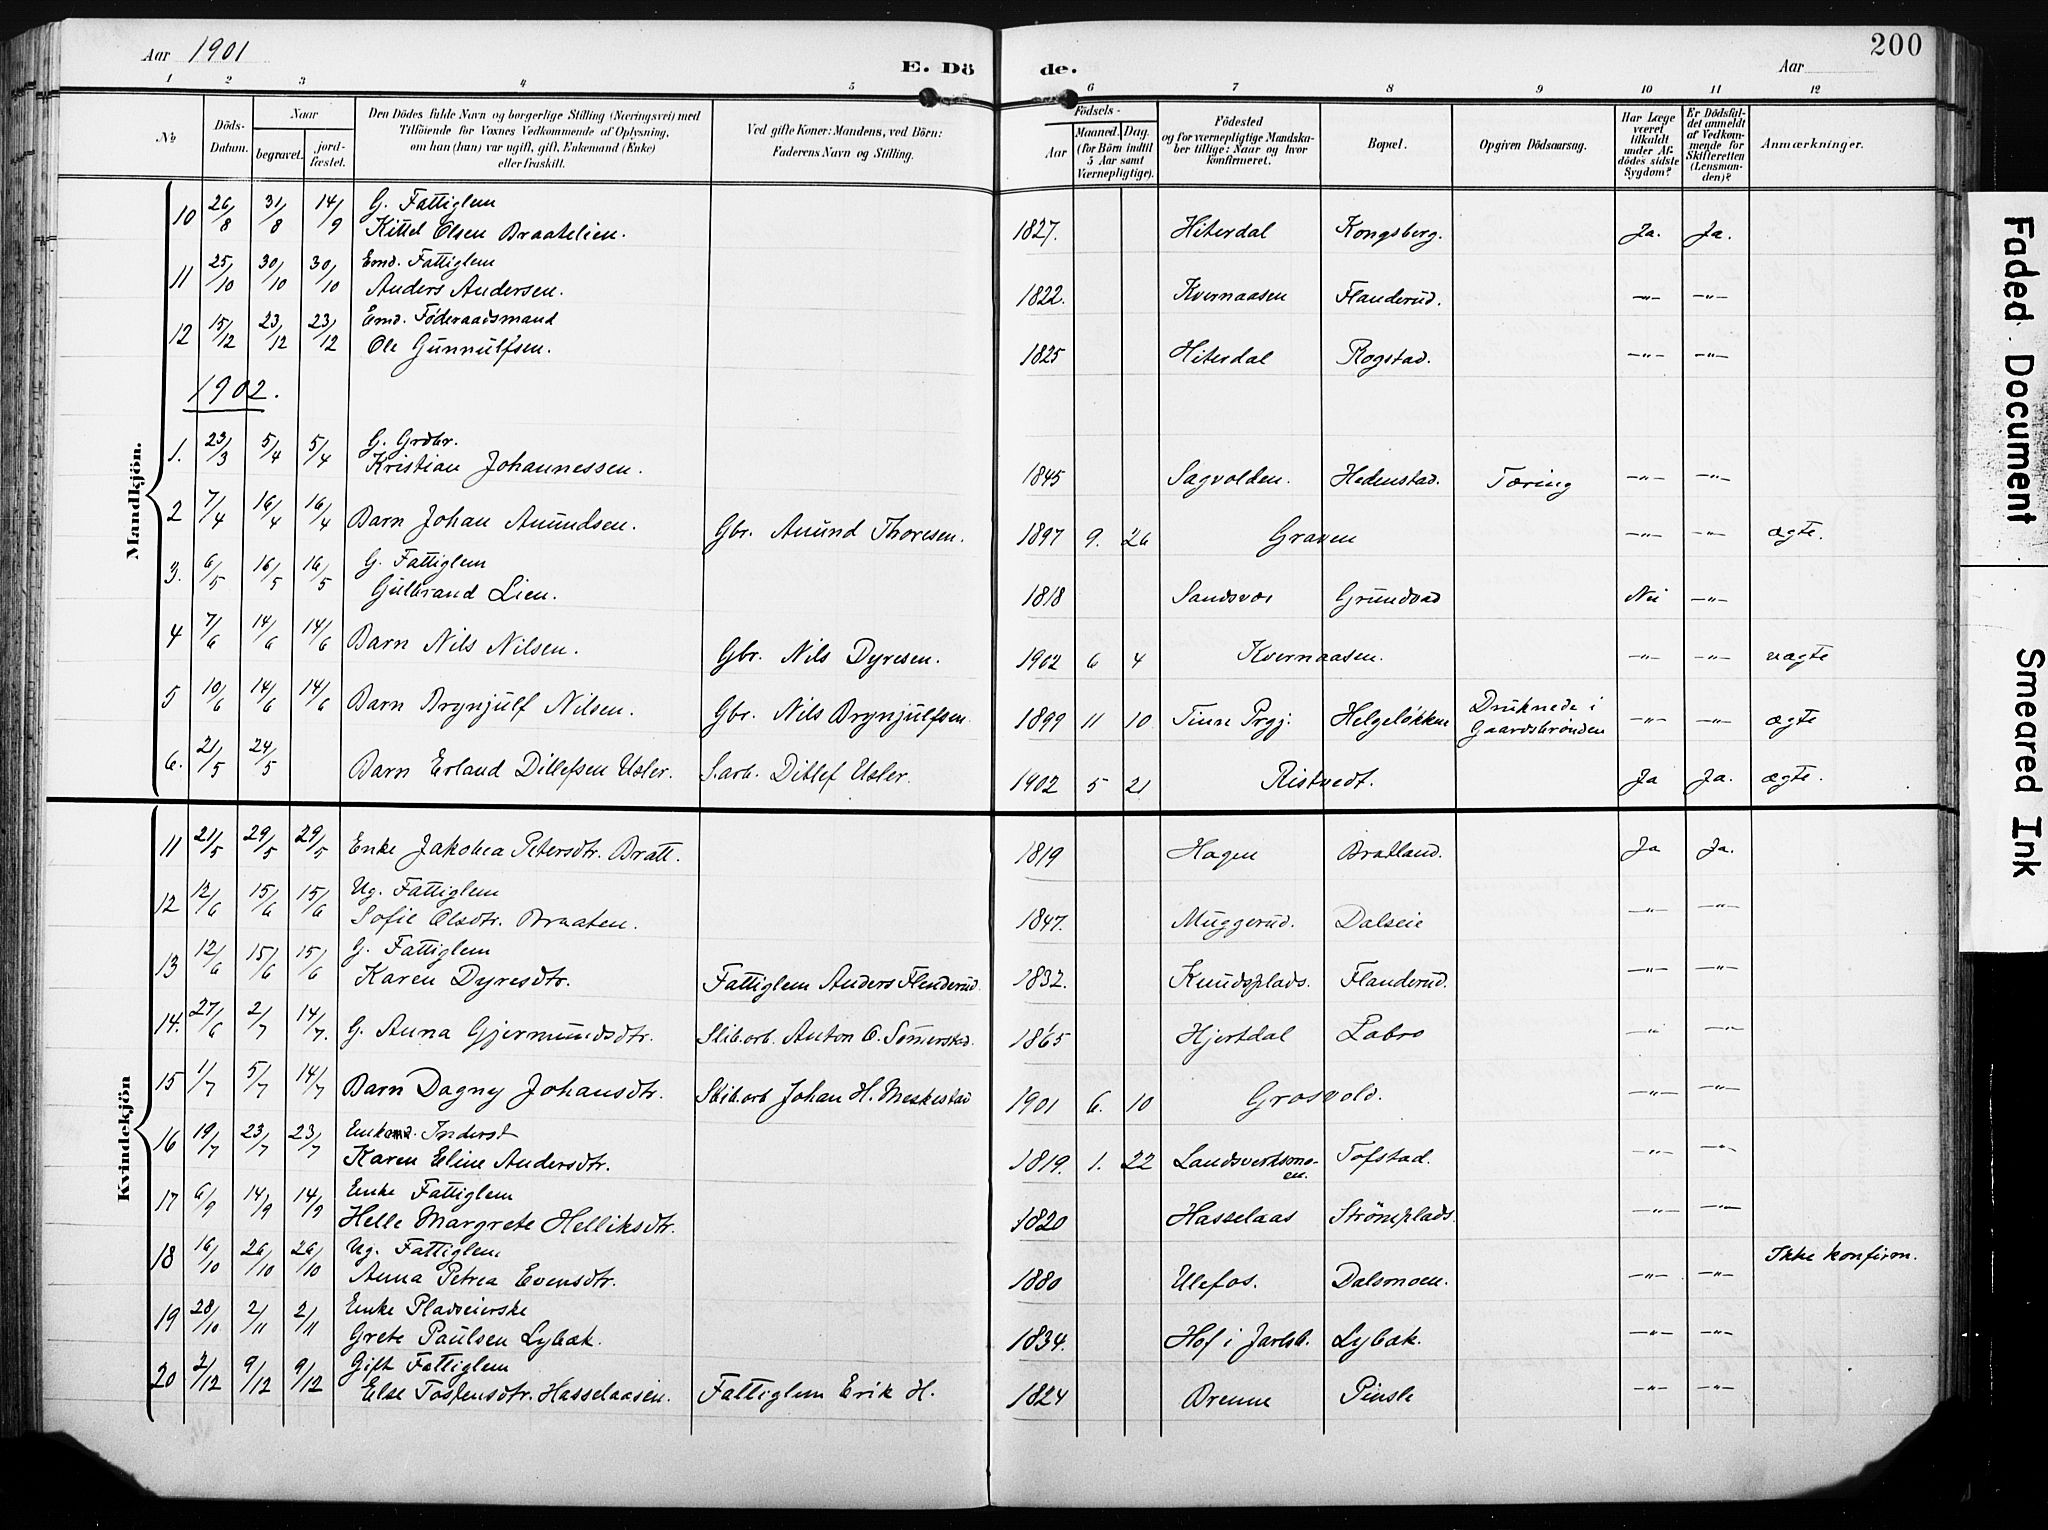 Aar 1901
E. Dö de.
Aar
200
1 2 3 4 5 6 7 8 9 10 11 12
No
Döds-Datum.
Naar
begravet.
jord-fæstet.
Den Dödes fulde Navn og borgerlige Stilling (Næringsvei) med
Tilföiende for Voxnes Vedkommende af Oplysning,
om han (hun) var ugift, gift, Enkemand (Enke)
eller fraskilt.
Ved gifte Koner: Mandens, ved Börn:
Faderens Navn og Stilling.
Födsels-
Aar
Maaned. Dag.
(for Börn indtil
5 Aar samt
Værnepligtige).
Födested
og for værnepligtige Mandska-
ber tillige: Naar og hvor
konfirmeret.
Bopæl.
Opgiven Dödsaarsag.
Har Læge
været
tilkaldt
under Af-
dödes sidste
Sygdom?
Er Dödsfal-
det anmeldt
af Vedkom-
mende for
Skifteretten
(Lensman-
den)?
Anmærkninger.
Mandkjön.
10 26/8 31/8 14/9 G. Fattiglem
Kittel Olsen Braatelien. 1827. Hiterdal Kongsberg. Ja. Ja.
11 25/10 30/10 30/10 Emd. Fattiglem
Anders Andersen. 1822. Kvernaasen Flanderud. -"- -"-
12 15/12 23/12 23/12 Emd. Föderaadsmand
Ole Gunnulfsen. 1825 Hiterdal Rogstad. -"- -"-
1902.
1. 23/3 5/4 5/4 G. Grdbr.
Kristian Johannessen. 1845 Sagvolden. Hedenstad. Tæring -"- -"-
2 7/4 16/4 16/4 Barn Johan Amundsen. Gbr. Amund Thoresen. 1897 9. 26 Graven -"- -"- ægte.
3. 6/5 16/5 16/5 G. Fattiglem
Gulbrand Lien. 1818 Sandsvær Grundvad Nei -"-
4 7/6 14/6 14/6 Barn Nils Nilsen. Gbr. Nils Dyresen. 1902 6 4 Kvernaasen. -"- -"- uægte
5 10/6 14/6 14/6 Barn Brynjulf Nilsen. Gbr. Nils Brynjulfsen 1899 11 10 Tinn Prgj. Helgeløkken Druknede i
Gaardsbrønden -"- -"- ægte
6. 21/5 24/5 Barn Erland Ditlefsen Usler. S.arb. Ditlef Usler. 1902 5 21 Ristvedt. Ja Ja. ægte.
Kvindekjön
11 21/5 29/5 29/5 Enke Jakobea Petersdtr. Bratt. 1819 Hagen Bratland. Ja Ja.
12 12/6 15/6 15/6 Ug. Fattiglem
Sofie Olsdtr. Braaten. 1847. Muggerud. Dalseie -"- -"-
13 12/6 15/6 15/6 G. Fattiglem
Karen Dyresdtr. Fattiglem Anders Flenderud. 1832. Knudsplads. Flanderud. -"- -"-
14. 27/6 2/7 14/7. G. Anna Gjermundsdtr. Slib.arb. Anton O. Sømerstad. 1865 Hjertdal Labro -"- -"-
15 1/7 5/7 14/7 Barn Dagny Johansdtr. Slib.arb Johan H. Meskestad 1901 6. 10 Grosvold. -"- -"-
16 19/7 23/7 23/7 Inderst
Karen Eline Andersdtr. 1819. 1. 22 Landsverksmo-
en. Tofstad. -"- -"-
17 6/9 14/9 14/9 Enke Fattiglem
Helle Margrete Helliksdtr. 1820 Hasselaas Strömplads. -"- -"-
18 16/10 26/10 26/10 Ug. Fattiglem
Anna Petrea Evensdtr. 1880 Ulefos. Dalsmoen. -"- -"- Ikke konfirm.
19 28/10 2/11 2/11 Enke Pladseierske
Grete Paulsen Lybæk. 1834. Hof i Jarlsb. Lybæk. -"- -"-
20 3/12 9/12 9/12 Gift Fattiglem
Else Tosfensdtr. Hasselaasen. Fattiglem Erik H. 1824 Brenne Pinsle -"- -"-
Faded Document
Smeared Ink